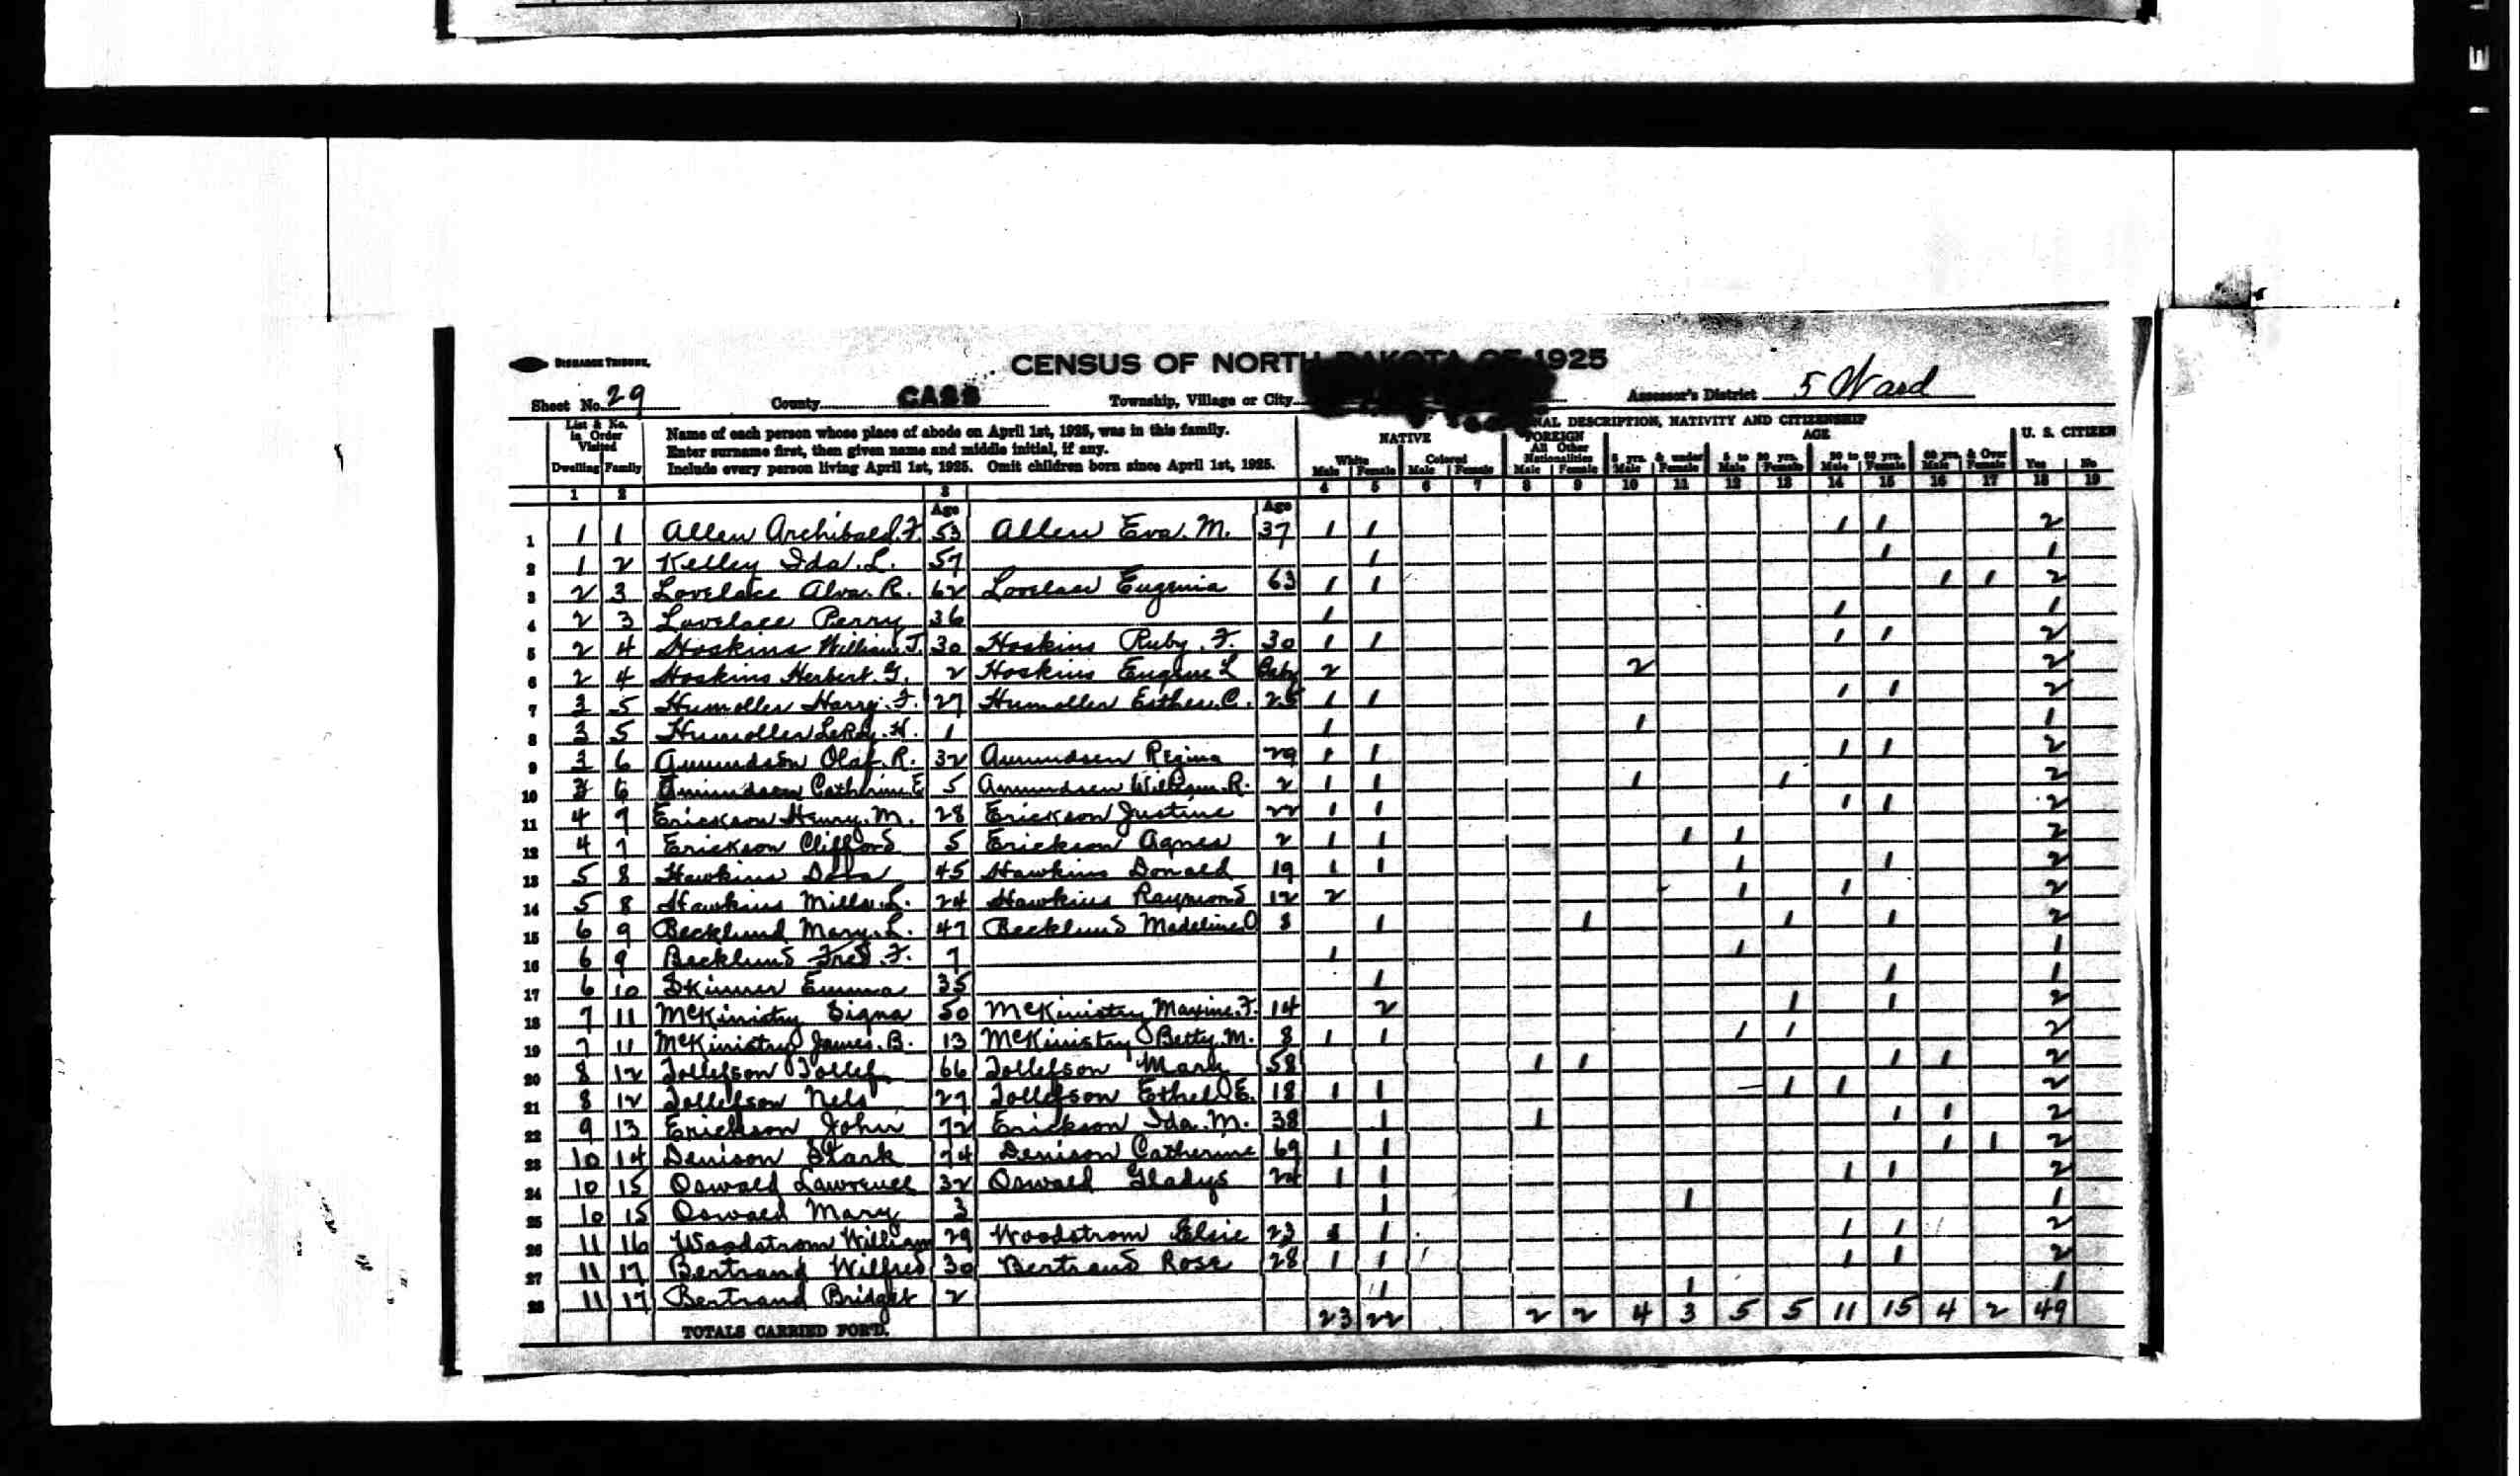 BISMARCK TRIBUNE,
CENSUS OF NORTH DAKOTA OF 1925
Sheet No. 29 County CASS Township, Village or City Assessor's District 5 Ward
List & No. in Order Visited
Dwelling Family
Name of each person whose place of abode on April 1st, 1925, was in this family.
Enter surname first, then given name and middle initial, if any.
Include every person living April 1st, 1925. Omit children born since April 1st, 1925.
NAL DESCRIPTION, NATIVITY AND CITIZENSHIP
NATIVE FOREIGN AGE U. S. CITIZEN
White Colored All Other Nationalities 5 yrs. & under 5 to 20 yrs. 20 to 60 yrs. 60 yrs. & Over
Male Female Male Female Male Female Male Female Male Female Male Female Male Female Yes No
1 2 3 4 5 6 7 8 9 10 11 12 13 14 15 16 17 18 19
Age Age
1 1 1 Allen Archibald. F. 53 Allen Eva. M. 37 1 1 1 1 2
2 1 2 Kelley Ida. L. 57 1 1 1
3 2 3 Lovelace Alva. R. 62 Lovelace Eugenia 63 1 1 1 1 2
4 2 3 Lovelace Perry 36 1 1 1
5 2 4 Hoskins William J. 30 Hoskins Ruby. F. 30 1 1 1 1 2
6 2 4 Hoskins Herbert. G. 2 Hoskins Eugene L Baby 2 2 2
7 3 5 Humoller Harry. F. 27 Humoller Esther. C. 25 1 1 1 1 2
8 3 5 Humoller LeRoy. H. 1 1 1 1
9 3 6 Amundson Olaf. R. 32 Amundsen Regina 29 1 1 1 1 2
10 3 6 Amundsen Catherine E 5 Amundsen William. R. 2 1 1 1 1 2
11 4 7 Erickson Henry. M. 28 Erickson Justine 22 1 1 1 1 2
12 4 7 Erickson Clifford 5 Erickson Agnes 2 1 1 1 1 2
13 5 8 Hawkins Dora 45 Hawkins Donald 19 1 1 1 1 2
14 5 8 Hawkins Mills. L. 24 Hawkins Raymond 12 2 1 1 2
15 6 9 Becklund Mary. L. 47 Becklund Madeline O 8 1 1 1 1 2
16 6 9 Becklund Fred. F. 7 1 1 1
17 6 10 Skinner Emma 35 1 1 1
18 7 11 McKinistry Signa 50 McKinistry Maxine. F. 14 2 1 1 2
19 7 11 McKinistry James. B. 13 McKinistry Betty. M. 8 1 1 1 1 2
20 8 12 Tollefson Tollef 66 Tollefson Mary 58 1 1 1 1 2
21 8 12 Tollefson Nels 27 Tollefson Ethel E. 18 1 1 1 1 2
22 9 13 Erickson John 72 Erickson Ida. M. 38 1 1 1 1 2
23 10 14 Denison Stark 74 Denison Catherine 69 1 1 1 1 2
24 10 15 Oswald Lawrence 32 Oswald Gladys 24 1 1 1 1 2
25 10 15 Oswald Mary 3 1 1 1
26 11 16 Woodstrom William 29 Woodstrom Elsie 23 1 1 1 1 2
27 11 17 Bertrand Wilfred 30 Bertrand Rose 28 1 1 1 1 2
28 11 17 Bertrand Bridget 2 1 1 1
TOTALS CARRIED FOR'D. 23 22 2 2 4 3 5 5 11 15 4 2 49